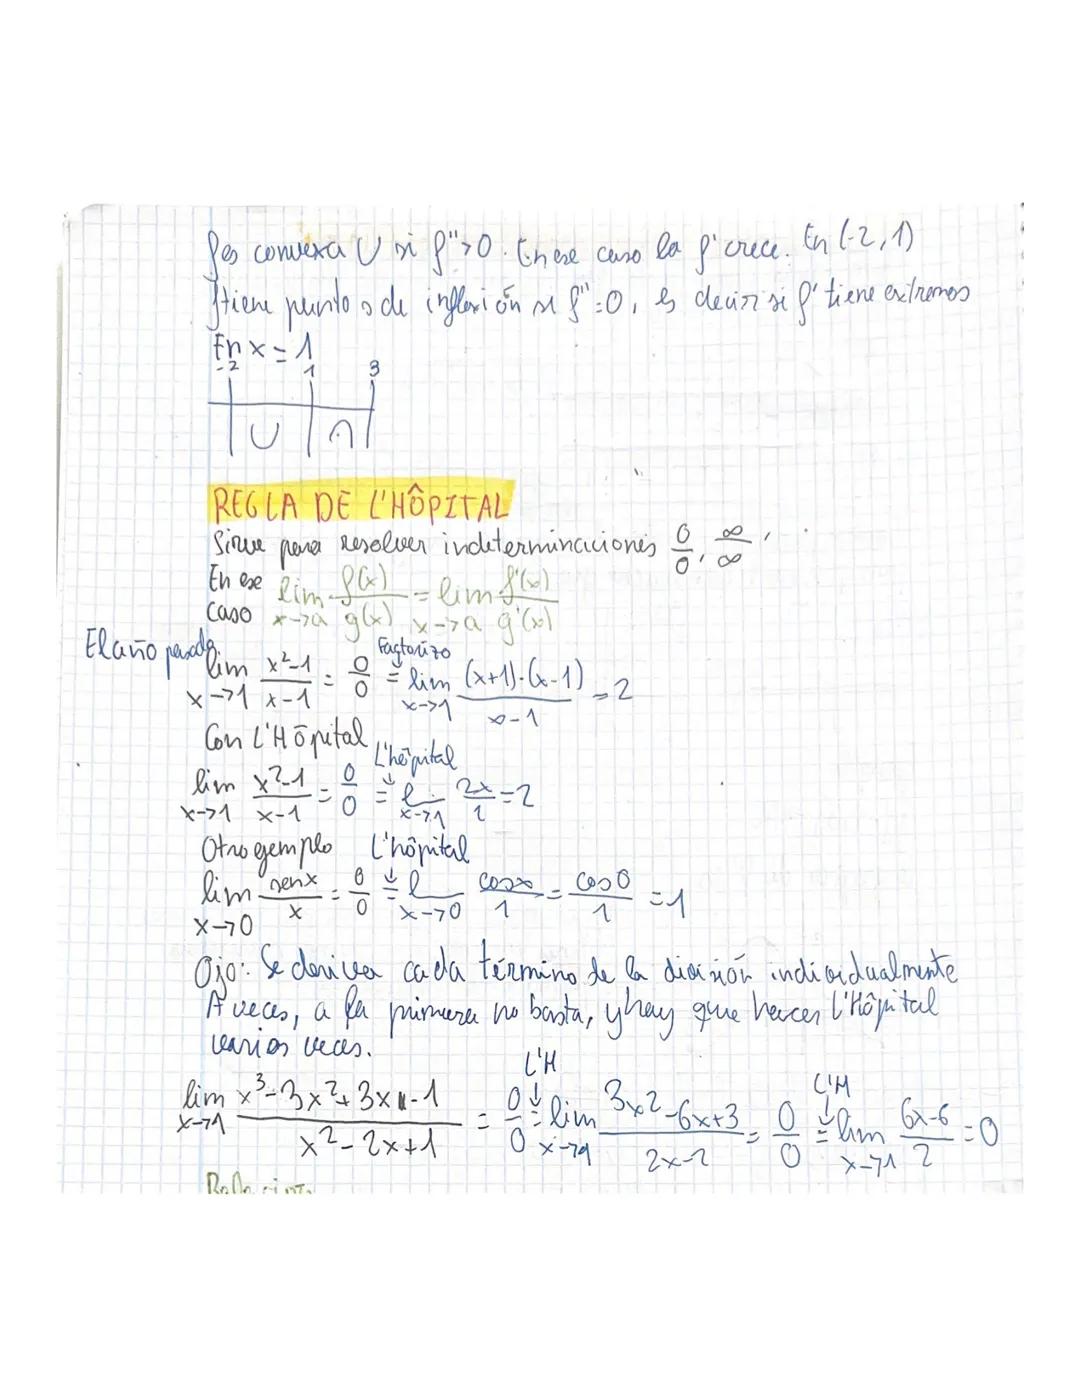 f es convexa ∪ si f''>0. En ese caso la f' crece. En (-2, 1)
f tiene puntos de inflexión si f''=0, es decir si f' tiene extremos
En x = 1
-2 1 3
∪ ∩
REGLA DE L'HÔPITAL
Sirve para resolver indeterminaciones 0/0, ∞/∞,
En ese caso lim x->a f(x)/g(x) = lim x->a f'(x)/g'(x)
El año pasado
Factorizo
lim x->1 (x²-1)/(x-1) = 0/0 = lim x->1 ((x+1)·(x-1))/(x-1) = 2
Con L'Hōpital
L'hôpital
lim x->1 (x²-1)/(x-1) = 0/0 = l x->1 2x/1 = 2
Otro ejemplo L'hôpital
lim x->0 senx/x = 0/0 = l x->0 cosx/1 = cos0/1 = 1
Ojo: Se deriva cada término de la división individualmente
A veces, a la primera no basta, y hay que hacer L'Hôpital
varias veces.
L'H L'H
lim x->1 (x³-3x²+3x-1)/(x²-2x+1) = 0/0 = lim x->1 (3x²-6x+3)/(2x-2) = 0/0 = lim x->1 (6x-6)/2 = 0